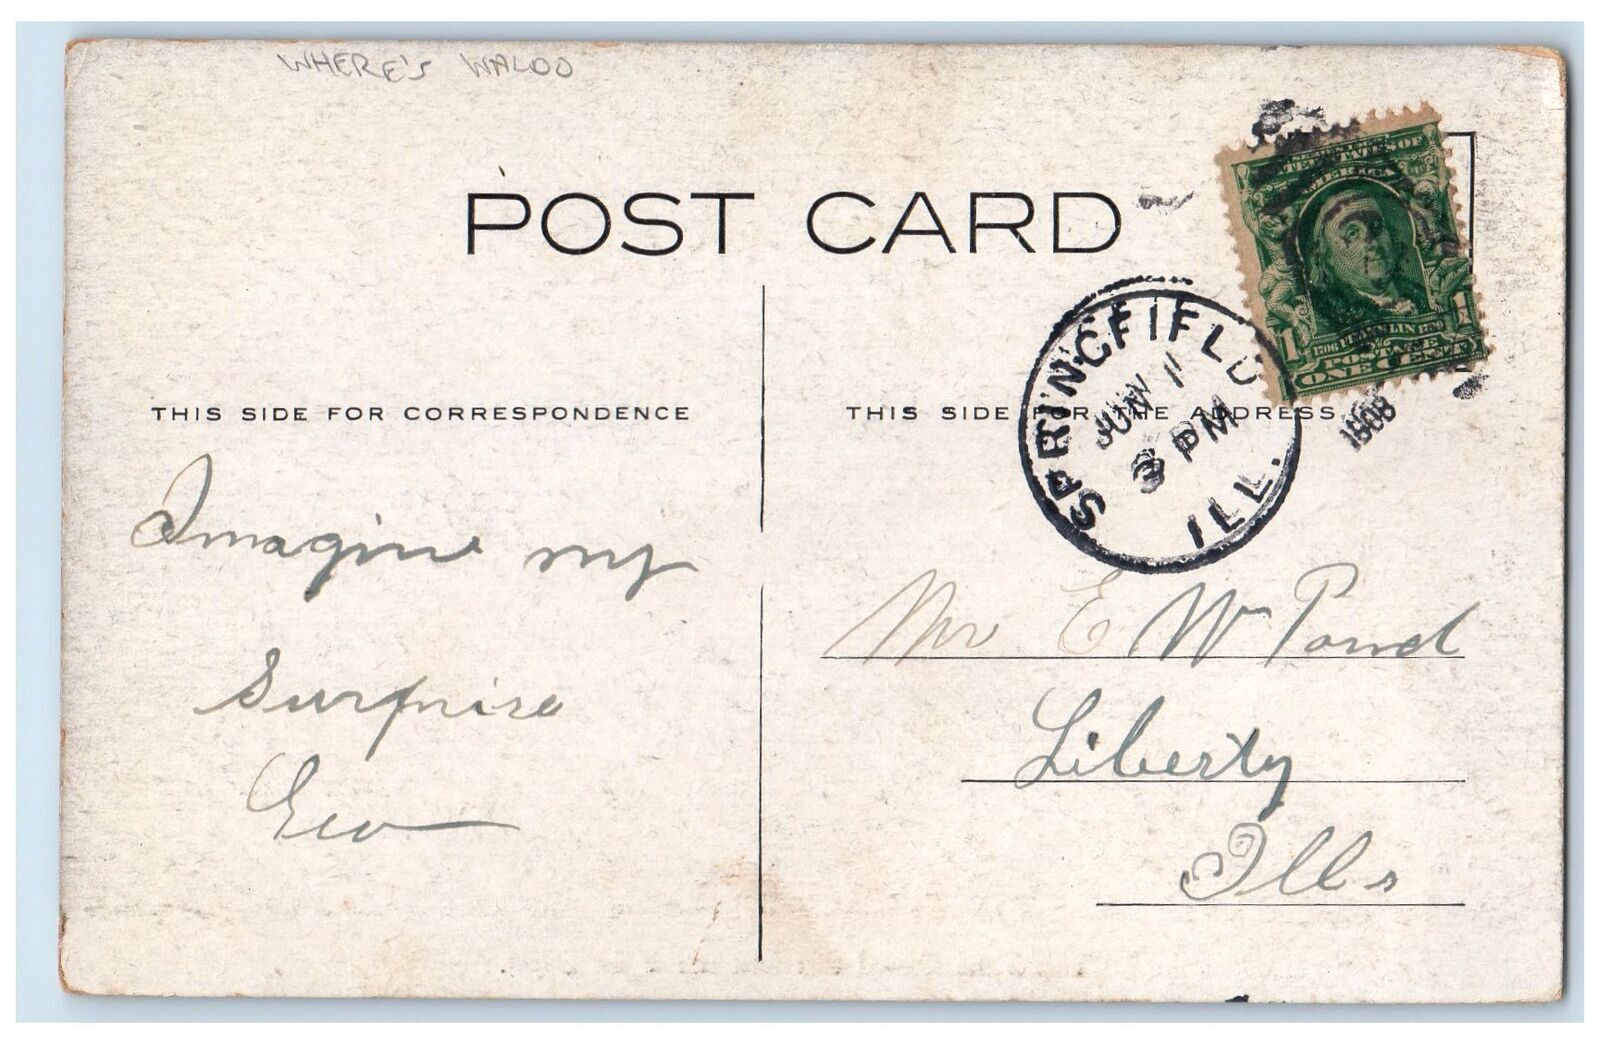 WHERE'S WALDO
POST CARD
SERIES 1902
THE UNITED STATES OF
AMERICA
1706 FRANKLIN 1790
1 POSTAGE 1
ONE CENT
SPRINGFIELD
JUN 1
PM
ILL.
1908
THIS SIDE FOR CORRESPONDENCE
THIS SIDE FOR THE ADDRESS
Imagine my
Surprise
Geo
Mr E W Pond
Liberty
Ills